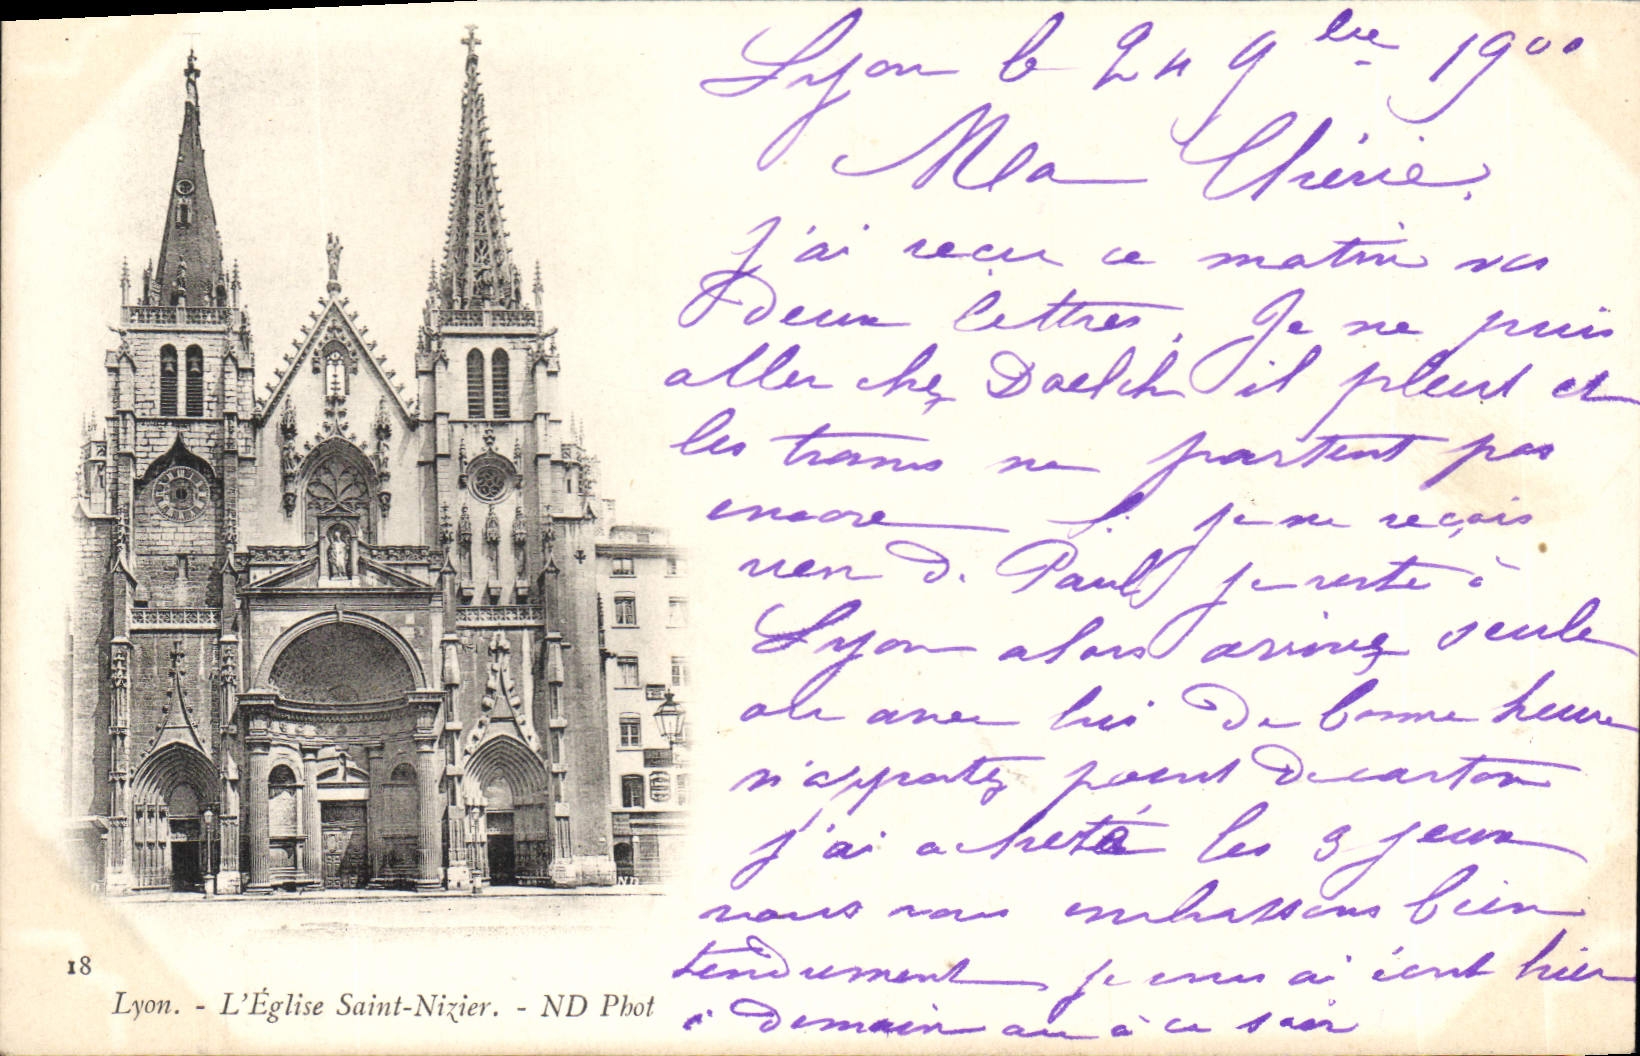 Lyon le 24 9bre 1900
Ma Chérie,
j'ai reçu ce matin vos
deux lettres. Je ne puis
aller chez Doelch il pleut et
les trams ne partent pas
encore je ne reçois
rien de Paul je reste à
Lyon alors arrivez seule
ou avec lui de bonne heure
n'apportez point de carton
j'ai acheté les 3 jeux
nous vous embrassons bien
tendrement je vous ai écrit hier
à demain ou à ce soir
18
Lyon. - L'Église Saint-Nizier. - ND Phot
ND